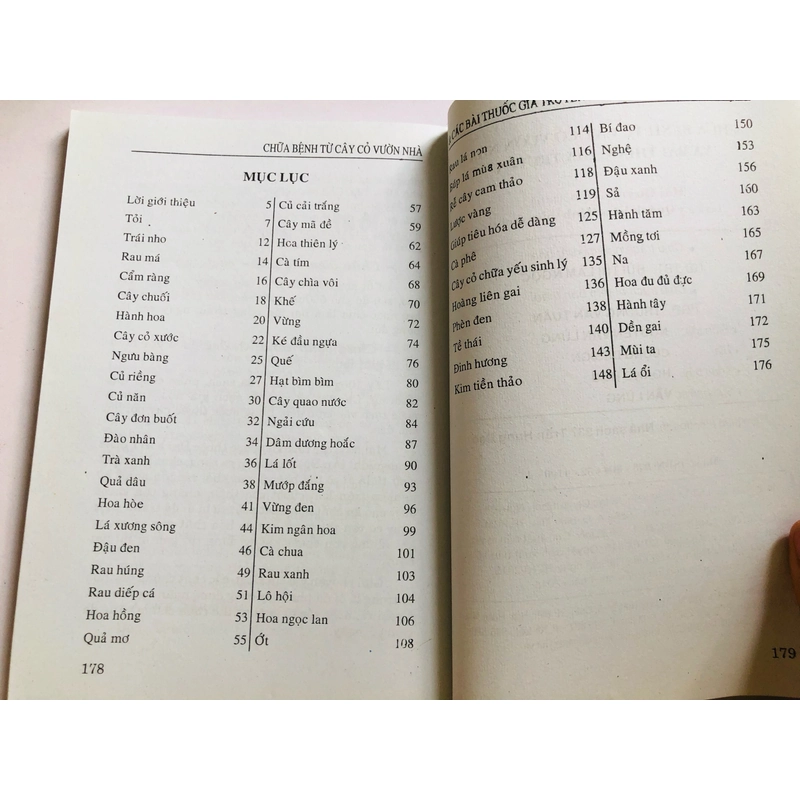 CHỮA BỆNH TỪ CÂY CỎ VƯỜN NHÀ
MỤC LỤC
Lời giới thiệu 5
Tỏi 7
Trái nho 12
Rau má 14
Cẩm ràng 16
Cây chuối 18
Hành hoa 20
Cây cỏ xước 22
Ngưu bàng 25
Củ riềng 27
Củ năn 30
Cây đơn buốt 32
Đào nhân 34
Trà xanh 36
Quả dâu 38
Hoa hòe 41
Lá xương sông 44
Đậu đen 46
Rau húng 49
Rau diếp cá 51
Hoa hồng 53
Quả mơ 55
Củ cải trắng 57
Cây mã đề 59
Hoa thiên lý 62
Cà tím 64
Cây chìa vôi 68
Khế 70
Vừng 72
Ké đầu ngựa 74
Quế 76
Hạt bìm bìm 80
Cây quao nước 82
Ngải cứu 84
Dâm dương hoắc 87
Lá lốt 90
Mướp đắng 93
Vừng đen 96
Kim ngân hoa 99
Cà chua 101
Rau xanh 103
Lô hội 104
Hoa ngọc lan 106
Ớt 108
178
& CÁC BÀI THUỐC GIA TRUYỀN
Rau lá non 114
Súp lá mùa xuân 116
Rễ cây cam thảo 118
Lược vàng 119
Giúp tiêu hóa dễ dàng 125
Cà phê 127
Cây cỏ chữa yếu sinh lý 135
Hoàng liên gai 136
Phèn đen 138
Tề thái 140
Đinh hương 143
Kim tiền thảo 148
Bí đao 150
Nghệ 153
Đậu xanh 156
Sả 160
Hành tăm 163
Mồng tơi 165
Na 167
Hoa đu đủ đực 169
Hành tây 171
Dền gai 172
Mùi ta 175
Lá ổi 176
179